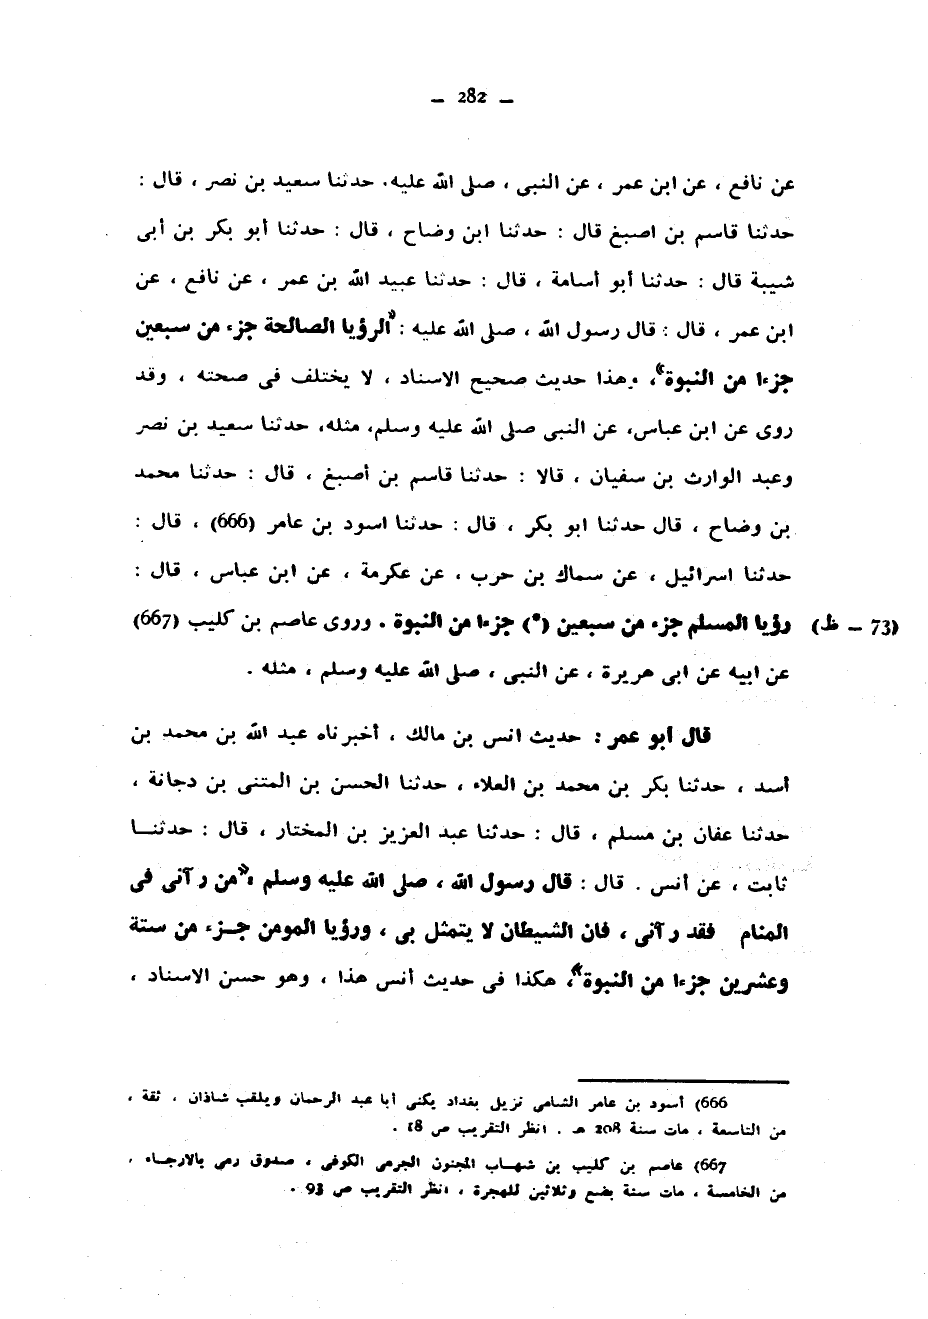 – 282 –
عن نافع ، عن ابن عمر ، عن النبى ، صلى الله عليه. حدثنا سعيد بن نصر ، قال :
حدثنا قاسم بن اصبغ قال : حدثنا ابن وضاح ، قال : حدثنا أبو بكر بن أبى
شيبة قال : حدثنا أبو أسامة ، قال : حدثنا عبيد الله بن عمر ، عن نافع ، عن
ابن عمر ، قال : قال رسول الله ، صلى الله عليه : «الرؤيا الصالحة جزء من سبعين
جزءا من النبوة»، وهذا حديث صحيح الاسناد ، لا يختلف فى صحته ، وقد
روى عن ابن عباس، عن النبى صلى الله عليه وسلم، مثله، حدثنا سعيد بن نصر
وعبد الوارث بن سفيان ، قالا : حدثنا قاسم بن أصبغ ، قال : حدثنا محمد
بن وضاح ، قال حدثنا ابو بكر ، قال : حدثنا اسود بن عامر (666) ، قال :
حدثنا اسرائيل ، عن سماك بن حرب ، عن عكرمة ، عن ابن عباس ، قال :
(73 – ظ) رؤيا المسلم جزء من سبعين (*) جزءا من النبوة . وروى عاصم بن كليب (667)
عن ابيه عن ابى هريرة ، عن النبى ، صلى الله عليه وسلم ، مثله .
قال أبو عمر : حديث انس بن مالك ، أخبرناه عبد الله بن محمد بن
أسد ، حدثنا بكر بن محمد بن العلاء ، حدثنا الحسن بن المتنى بن دجانة ،
حدثنا عفان بن مسلم ، قال : حدثنا عبد العزيز بن المختار ، قال : حدثنــا
ثابت ، عن أنس . قال : قال رسول الله ، صلى الله عليه وسلم ، «من رآنى فى
المنام فقد رآنى ، فان الشيطان لا يتمثل بى ، ورؤيا المومن جــزء من ستة
وعشرين جزءا من النبوة»، هكذا فى حديث أنس هذا ، وهو حسن الاسناد ،
666) أسود بن عامر الشامى نزيل بغداد يكنى أبا عبد الرحمان ويلقب شاذان ، ثقة ،
من التاسعة ، مات سنة 208 هـ . انظر التقريب ص 18 .
667) عاصم بن كليب بن شهــاب المجنون الجرمى الكوفى ، صدوق رمى بالارجــاء ،
من الخامسة ، مات سنة بضع وثلاثين للهجرة ، انظر التقريب ص 93 .